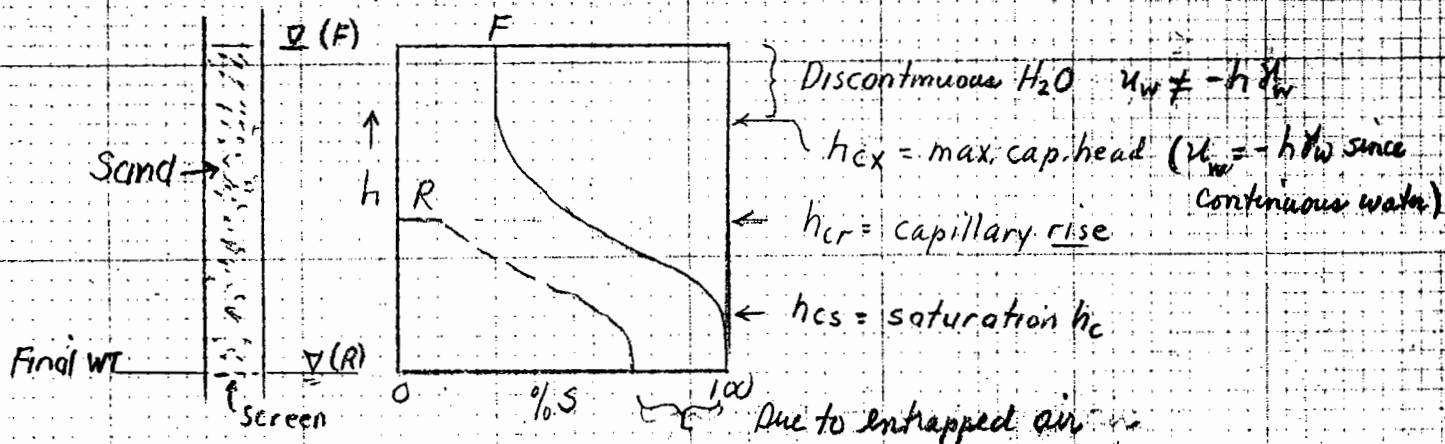 ∇ (F)
F
Discontinuous H₂O u_w ≠ -hγ_w
h_cx = max. cap. head (u_w = -hγ_w since
continuous water)
Sand
↑
h
R
h_cr = capillary rise
h_cs = saturation h_c
Final WT
∇ (R)
0 % S 100
screen
Due to entrapped air